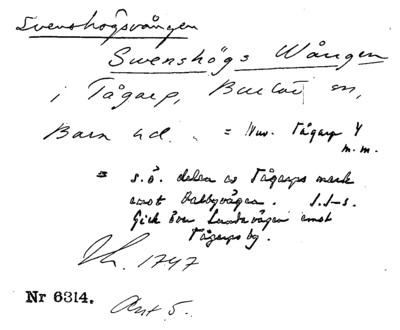 Svenshögsvången
Swenshögs Wången
i Tågarp, Burlöv sn,
Bara hd. = Nuv. Tågarp 4
m.m.
= s.ö. delen av Tågarps mark
emot Dalbyvägen.
Gick över Landsvägen emot
Tågarps by.
1747
Nr 6314. Akt 5.